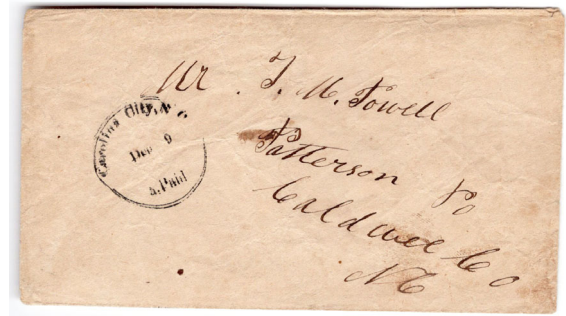 Carolina City, N.C.
Dec 9
5. Paid
Mr. T. M. Powell
Patterson Po
Caldwell Co
NC